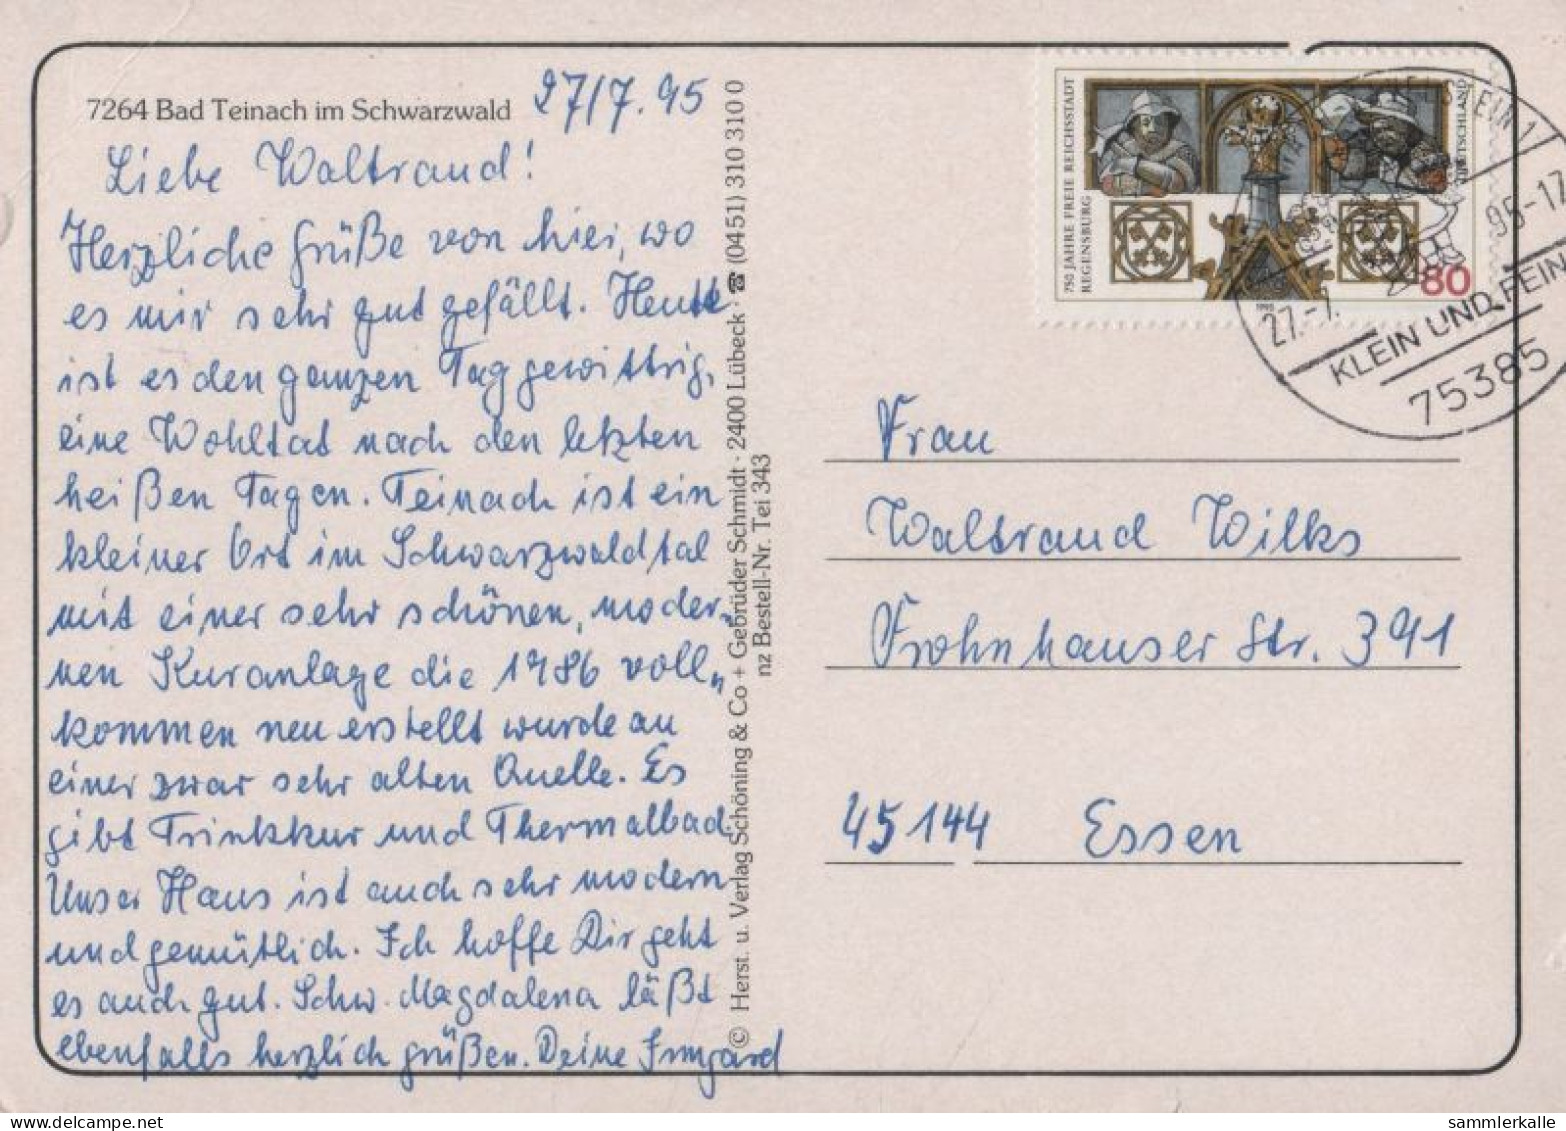 7264 Bad Teinach im Schwarzwald
27/7.95
Liebe Waltraud!
Herzliche Grüße von hier, wo
es mir sehr gut gefällt. Heute
ist es den ganzen Tag gewittrig,
eine Wohltat nach den letzten
heißen Tagen. Teinach ist ein
kleiner Ort im Schwarzwaldtal
mit einer sehr schönen, moder„
nen Kuranlage die 1986 voll„
kommen neu erstellt wurde an
einer zwar sehr alten Quelle. Es
gibt Trinkkur und Thermalbad.
Unser Haus ist auch sehr modern
und gemütlich. Ich hoffe Dir geht
es auch gut. Schw. Magdalena läßt
ebenfalls herzlich grüßen. Deine Irmgard
© Herst. u. Verlag Schöning & Co + Gebrüder Schmidt · 2400 Lübeck · ☎ (0451) 310 310 0
nz Bestell-Nr. Tei 343
750 JAHRE FREIE REICHSSTADT
REGENSBURG
DEUTSCHLAND
1995
80
27.-7.
95-17
KLEIN UND FEIN
75385
Frau
Waltraud Wilks
Frohnhauser Str. 391
45144 Essen
sammlerkalle
www.delcampe.net